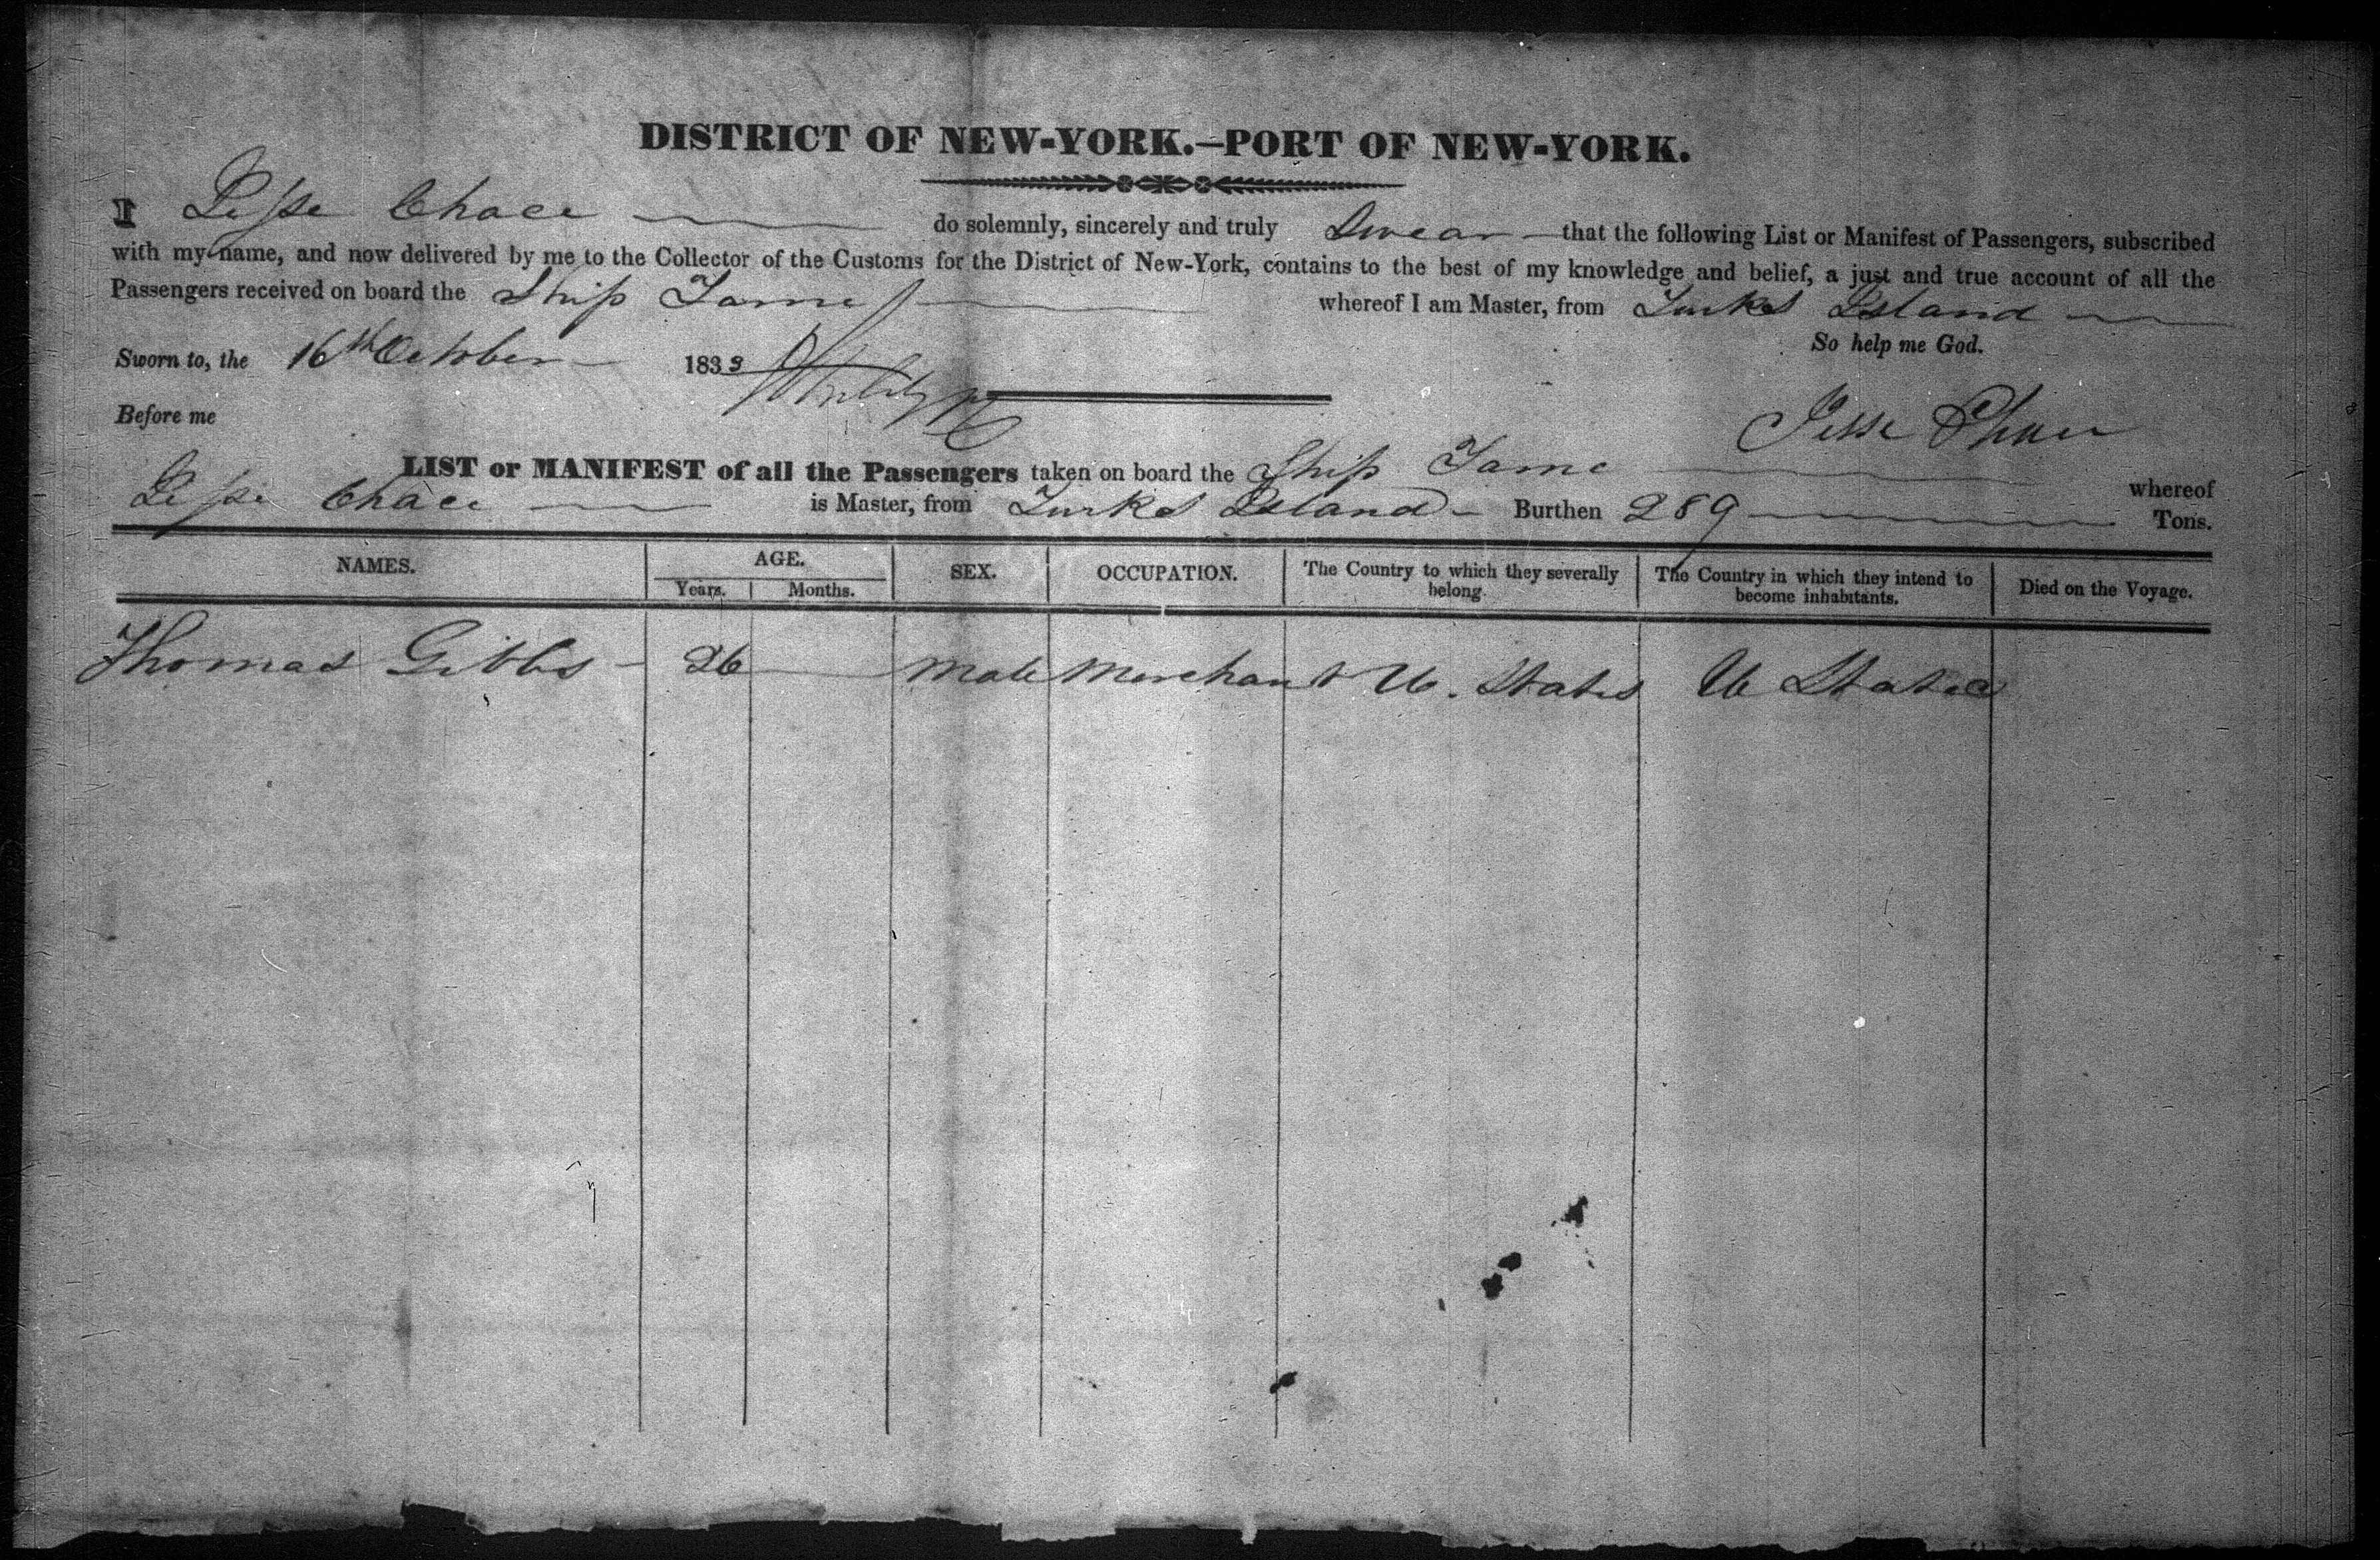 DISTRICT OF NEW-YORK.—PORT OF NEW-YORK.
I Jesse Chace do solemnly, sincerely and truly Swear that the following List or Manifest of Passengers, subscribed
with my name, and now delivered by me to the Collector of the Customs for the District of New-York, contains to the best of my knowledge and belief, a just and true account of all the
Passengers received on board the Ship Fame whereof I am Master, from Turks Island
So help me God.
Sworn to, the 16th October 1833
Before me
Jesse Chace
LIST or MANIFEST of all the Passengers taken on board the Ship Fame whereof
Jesse Chace is Master, from Turks Island Burthen 289 Tons.
NAMES. AGE. SEX. OCCUPATION. The Country to which they severally belong. The Country in which they intend to become inhabitants. Died on the Voyage.
Years. Months.
Thomas Gibbs 26 Male Merchant U. States U States